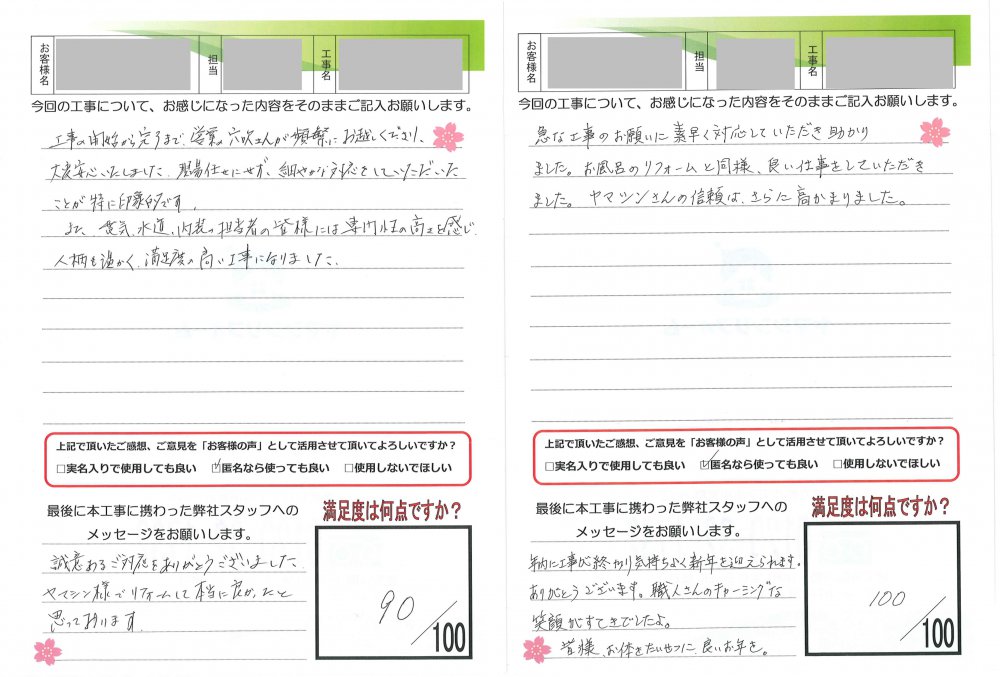 お客様名
担当
工事名
今回の工事について、お感じになった内容をそのままご記入お願いします。
工事の開始から完了まで、営業の穴吹さんが頻繁にお越しくださり、
大変安心いたしました。現場任せにせず、細やかな対応をしていただいた
ことが特に印象的です。
また、電気、水道、内装の担当者の皆様には専門性の高さを感じ、
人柄も温かく、満足度の高い工事になりました。
上記で頂いたご感想、ご意見を「お客様の声」として活用させて頂いてよろしいですか？
□実名入りで使用しても良い ☑匿名なら使っても良い □使用しないでほしい
最後に本工事に携わった弊社スタッフへの
メッセージをお願いします。
誠意あるご対応をありがとうございました。
ヤマシン様でリフォームして本当に良かったと
思っております。
満足度は何点ですか？
90/100
お客様名
担当
工事名
今回の工事について、お感じになった内容をそのままご記入お願いします。
急な工事のお願いに素早く対応していただき助かり
ました。お風呂のリフォームと同様、良い仕事をしていただき
ました。ヤマシンさんの信頼は、さらに高かまりました。
上記で頂いたご感想、ご意見を「お客様の声」として活用させて頂いてよろしいですか？
□実名入りで使用しても良い ☑匿名なら使っても良い □使用しないでほしい
最後に本工事に携わった弊社スタッフへの
メッセージをお願いします。
年内に工事が終わり気持ちよく新年を迎えられます。
ありがとうございます。職人さんのチャーミングな
笑顔がすてきでしたよ。
皆様、お体をたいせつに、良いお年を。
満足度は何点ですか？
100/100